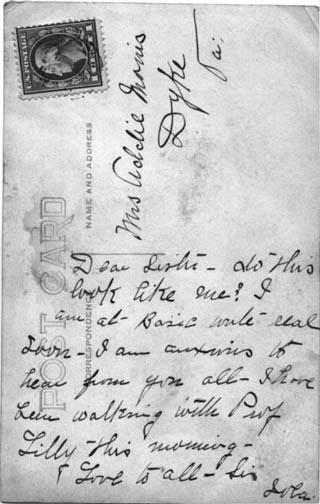 U.S. POSTAGE
1 CENT 1
Mrs Addie Morris
Dyke
Va.
POST CARD
NAME AND ADDRESS
CORRESPONDENCE
Dear Sister - do this
look like me? I
am at Basic write real
soon - I am anxious to
hear from you all - I have
been walking with Prof
Lilly this morning -
Love to all - Sis
Iola